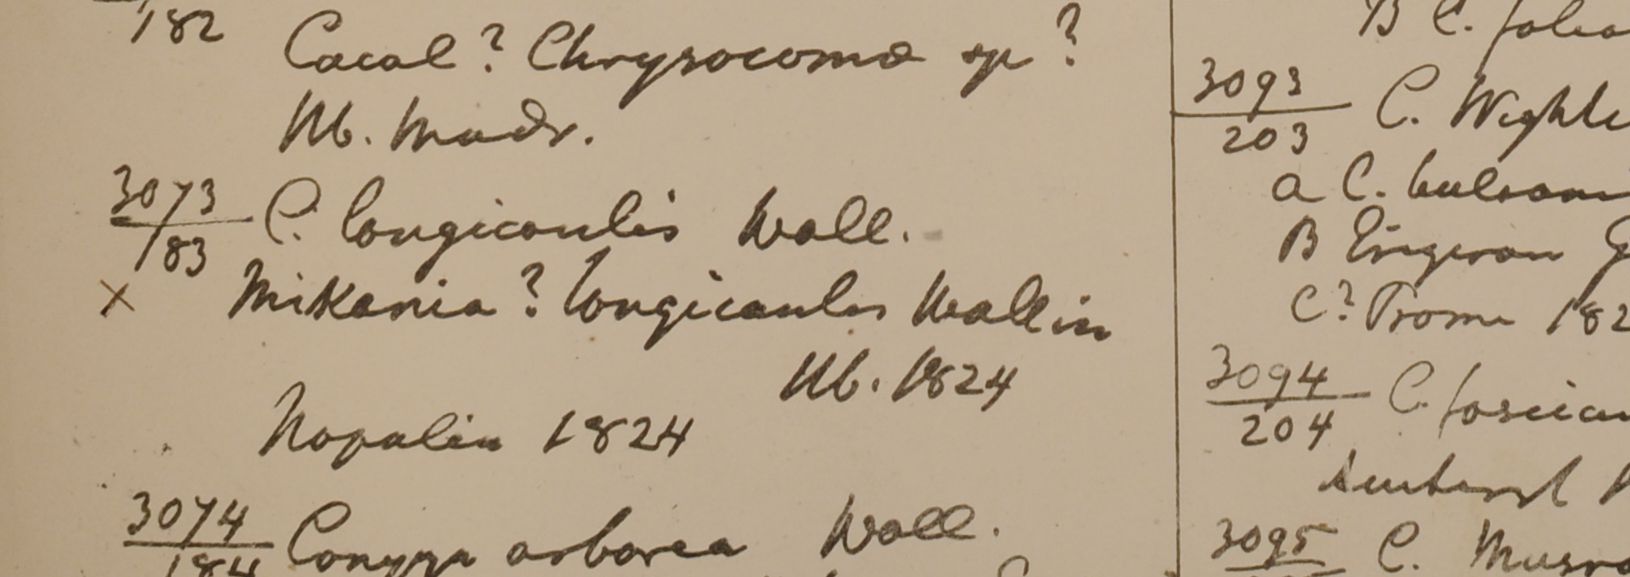 182
Cacal? Chrysocoma sp?
Hb. Madr.
3073
183
C. longicaulis Wall.
x Mikania? longicaulis Wall in
Hb. 1824
Napalia 1824
3074
184
Conyza arborea Wall.
B C.
3093
203
C. Wight
a C. balsami
B Erigeron G
C? Prome 182
3094
204
C. fascicu
Amherst
3095
C.